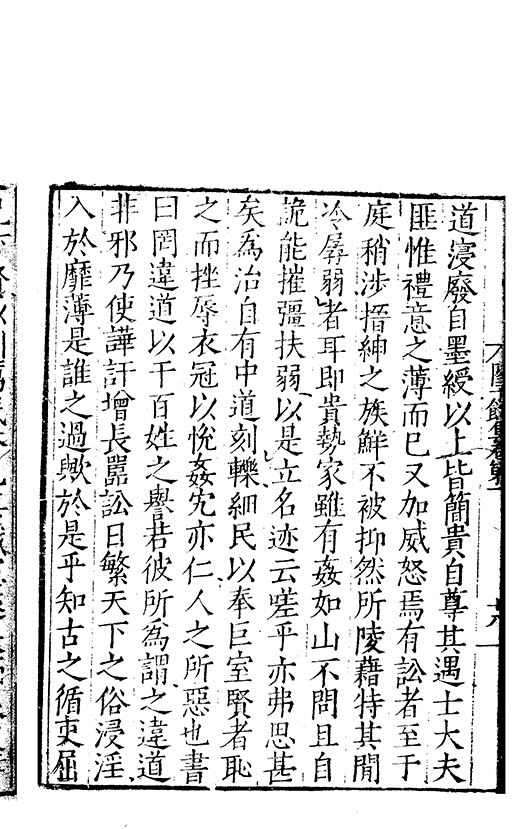 道寖廢自墨綬以上皆簡貴自尊其遇士大夫
匪惟禮意之薄而已又加威怒焉有訟者至于
庭稍涉搢紳之族鮮不被抑然所陵藉特其閒
冷孱弱者耳即貴勢家雖有姦如山不問且自
詭能摧彊扶弱以是立名迹云嗟乎亦弗思甚
矣為治自有中道刻轢細民以奉巨室賢者恥
之而挫辱衣冠以悅姦宄亦仁人之所惡也書
曰罔違道以干百姓之譽若彼所為謂之違道
非邪乃使譁訐增長嚚訟日繁天下之俗浸淫
入於靡薄是誰之過歟於是乎知古之循吏屈